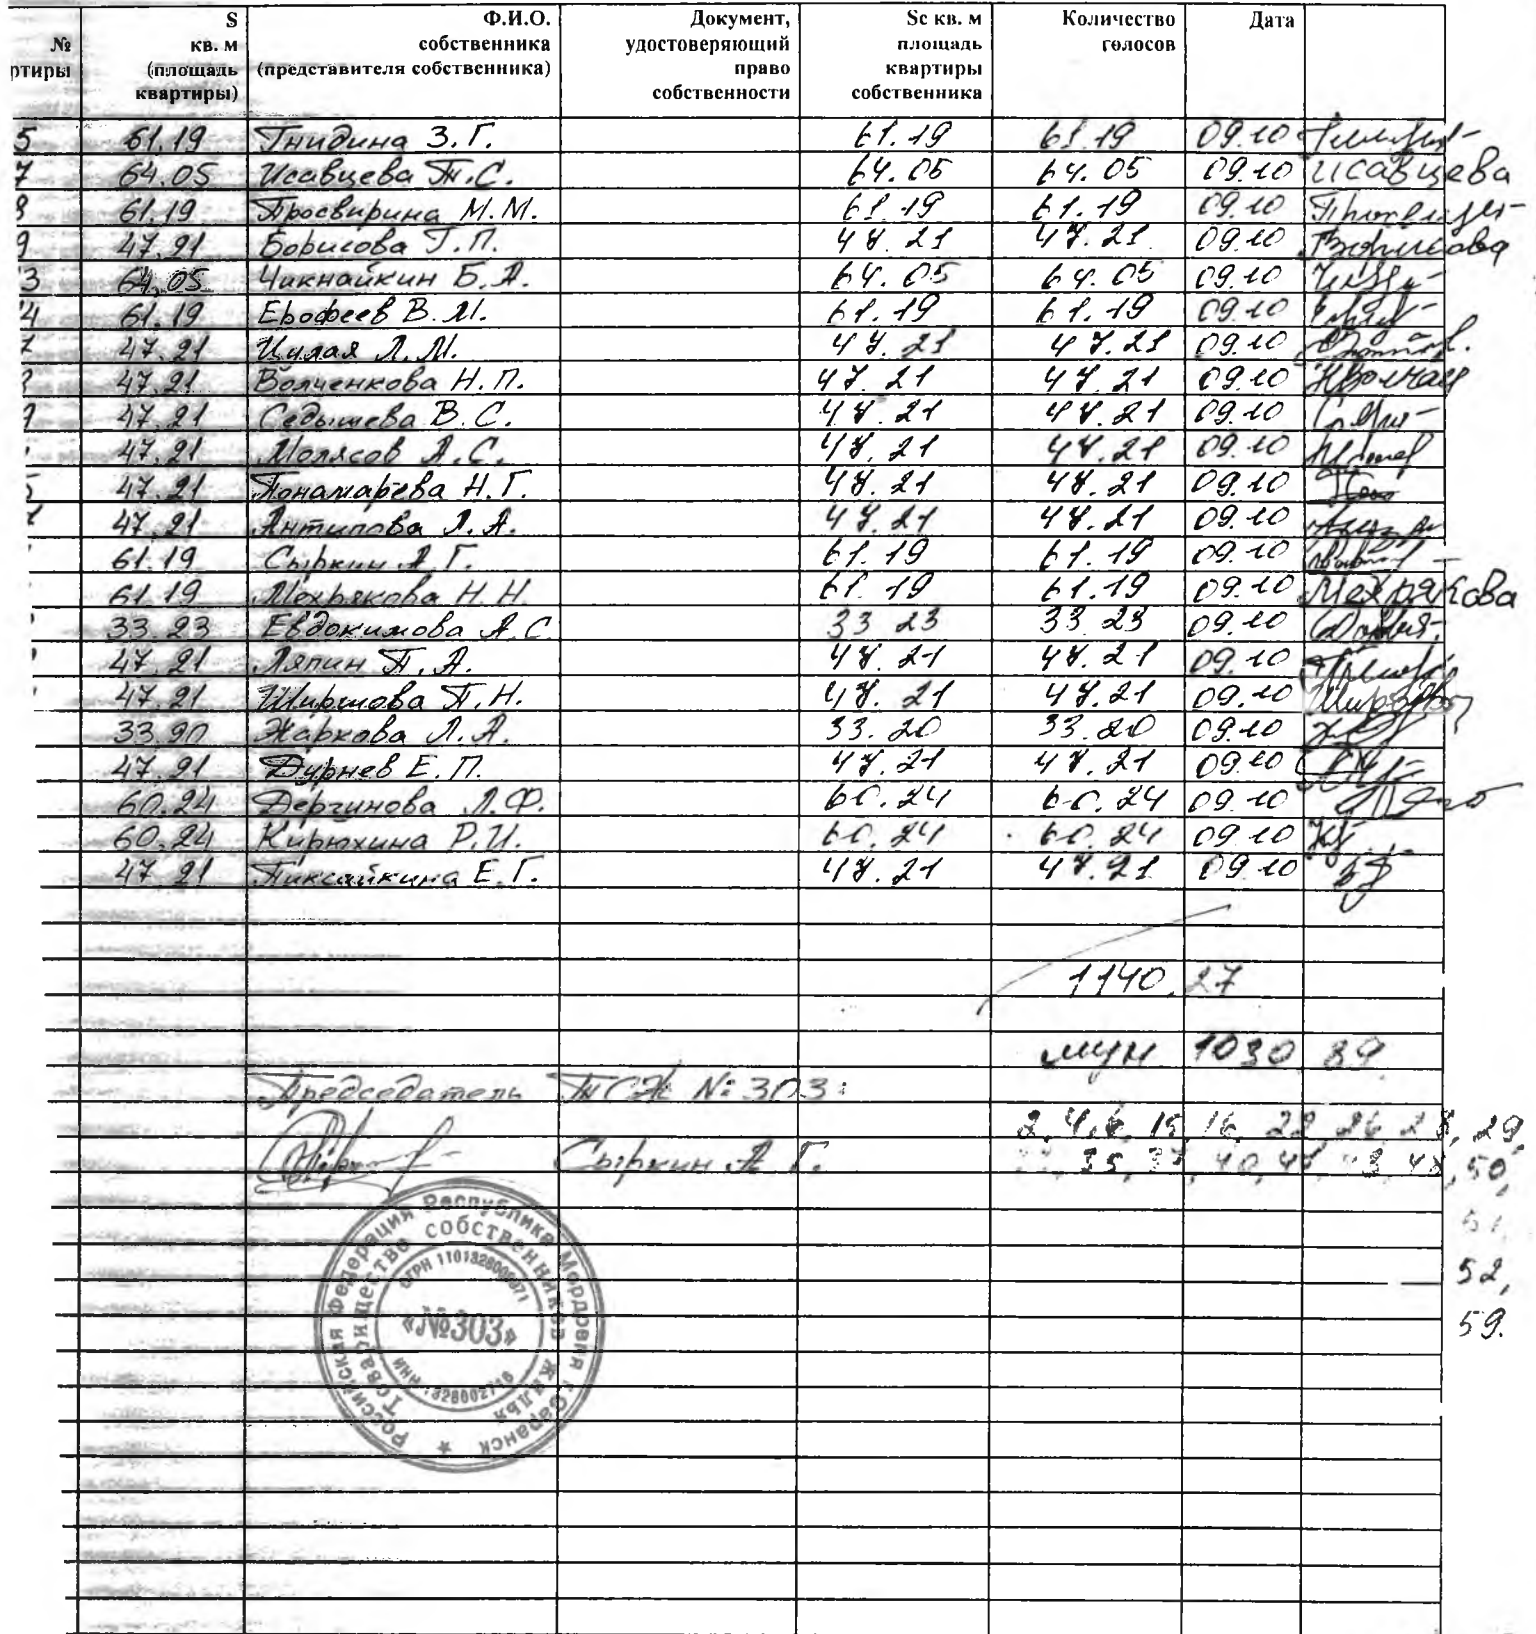 № ртиры | S кв. м (площадь квартиры) | Ф.И.О. собственника (представителя собственника) | Документ, удостоверяющий право собственности | Sс кв. м площадь квартиры собственника | Количество голосов | Дата
5 61.19 Гнидина З.Г. 61.19 61.19 09.10
7 64.05 Исавцева Т.С. 64.05 64.05 09.10 Исавцева
8 61.19 Просвирина М.М. 61.19 61.19 09.10
9 47.21 Борисова Г.П. 47.21 47.21 09.10 Борисова
3 64.05 Чикнайкин Б.А. 64.05 64.05 09.10
4 61.19 Ерофеев В.М. 61.19 61.19 09.10
47.21 Цилая Л.М. 47.21 47.21 09.10
47.21 Волченкова Н.П. 47.21 47.21 09.10
47.21 Седышева В.С. 47.21 47.21 09.10
47.21 Молясов А.С. 47.21 47.21 09.10
5 47.21 Понамарева Н.Г. 47.21 47.21 09.10
47.21 Антипова Л.А. 47.21 47.21 09.10
61.19 Сыркин А.Г. 61.19 61.19 09.10
61.19 Мехрякова Н.Н. 61.19 61.19 09.10 Мехрякова
33.23 Евдокимова А.С. 33 23 33 23 09.10
47.21 Ляпин П.А. 47.21 47.21 09.10
47.21 Ширшова Т.Н. 47.21 47.21 09.10
33.20 Жаркова Л.А. 33.20 33.20 09.10
47.21 Дурнев Е.П. 47.21 47.21 09.10
60.24 Дергунова Л.Ф. 60.24 60.24 09.10
60.24 Кирюхина Р.И. 60.24 60.24 09.10
47.21 Пиксайкина Е.Г. 47.21 47.21 09.10
1140.27
мун 1030 89
Председатель ТСЖ №303:
2, 4, 6, 15, 16, 22, 26, 28, 29,
Сыркин А.Г. 35, 37, 40, 41, 43, 48, 50,
51,
52,
59.
Российская Федерация Республика Мордовия г.Саранск
Товарищество собственников жилья
«№303»